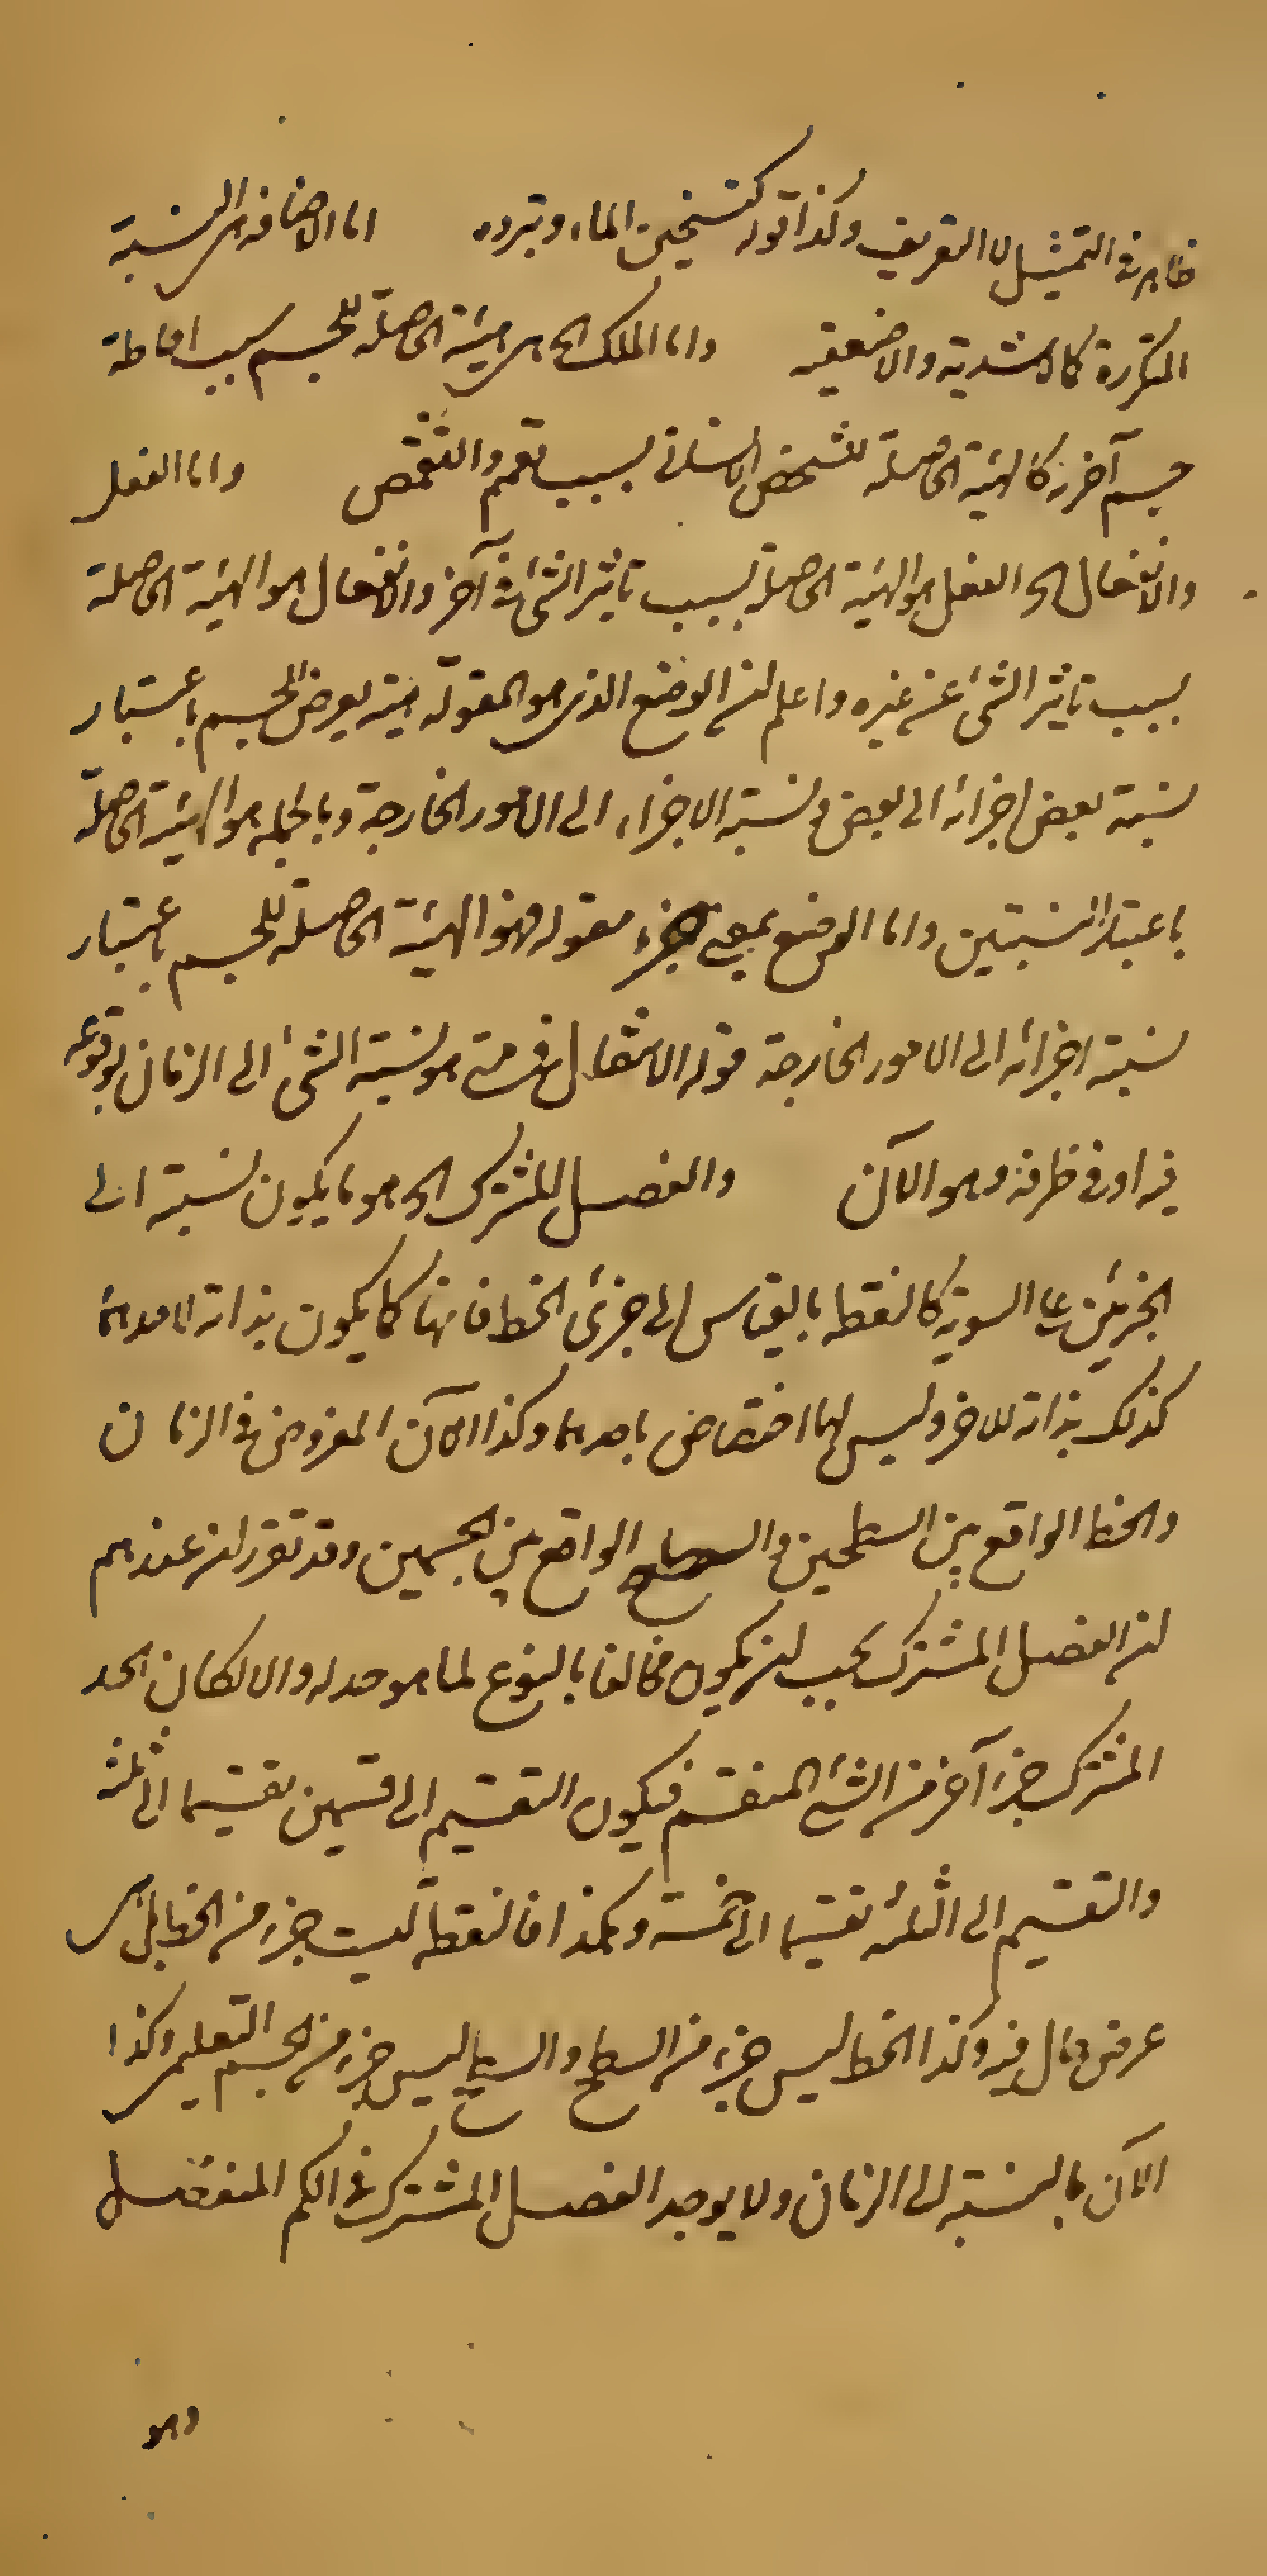 ظاهر في التمثيل لا التعريف وكذا قوله كتسخين الماء وتبرده اما الاضافه هي النسبة
المتكررة كالاشدية والاضعفية واما الملك الخ هي هيئة الحاصلة للجسم بسبب احاطة
جسم آخر به كالهيئة الحاصلة للشخص الانساني بسبب تعمم والتقمص واما الفعل
والانفعال الخ الفعل هو الهيئة الحاصلة بسبب تاثير الشئ في آخر والانفعال هو الهيئة الحاصلة
بسبب تاثير الشئ عن غيره واعلم ان الوضع الذي هو المقولة هيئة يعرض للجسم باعتبار
نسبة بعض اجزائه الى بعض ونسبة الاجزاء الى الامور الخارجة وبالجمله هو الهيئة الحاصلة
باعتبار النسبتين واما الوضع بمعنى جزء مقوله فهو الهيئة الحاصلة للجسم باعتبار
نسبة اجزائه الى الامور الخارجة قوله الانتقال في متى هو نسبة الشئ الى الزمان بوقوعه
فيه او في طرفه وهو الآن والفصل المشترك الخ هو ما يكون نسبته الى
الجزئين على السوية كالنقطه بالقياس الى جزئى الخط فانها كما يكون بذاته لاحدهما
كذلك بذاته للاخر وليس لها اختصاص باحدهما وكذا الآن المفروض في الزمان
والخط الواقع بين السطحين والسطح الواقع بين الجسمين وقد تقرر ان عندهم
ان الفصل المشترك يجب ان يكون مخالفا بالنوع لما هو حد له والا لكان الحد
المشترك جزء آخر من الشئ المنقسم فيكون التقسيم الى قسمين تقسيما الى ثلثة
والتقسيم الى الثلثة تقسيما الى خمسة وهكذا فالنقطة ليست جزء من الخط بل هي
عرض حال فيه وكذا الخط ليس جزء من السطح والسطح ليس جزء من الجسم التعليمي وكذا
الآن بالنسبة الى الزمان ولا يوجد الفصل المشترك في الكم المنفصل
وهو